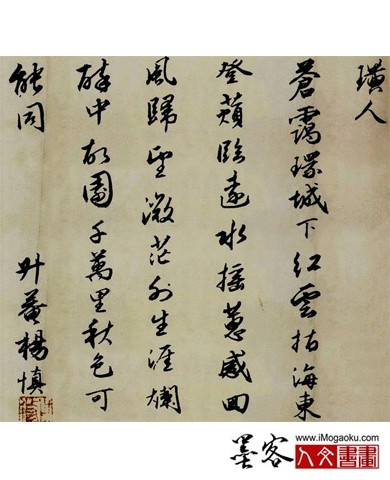 璜人
蒼靄環城下紅雲指海東
登蘋臨遠水搖蕙感回
風歸望微茫外生涯爛
醉中故園千萬里秋色可
能同
升菴楊慎
墨客
www.iMogaoku.com
人文書畫